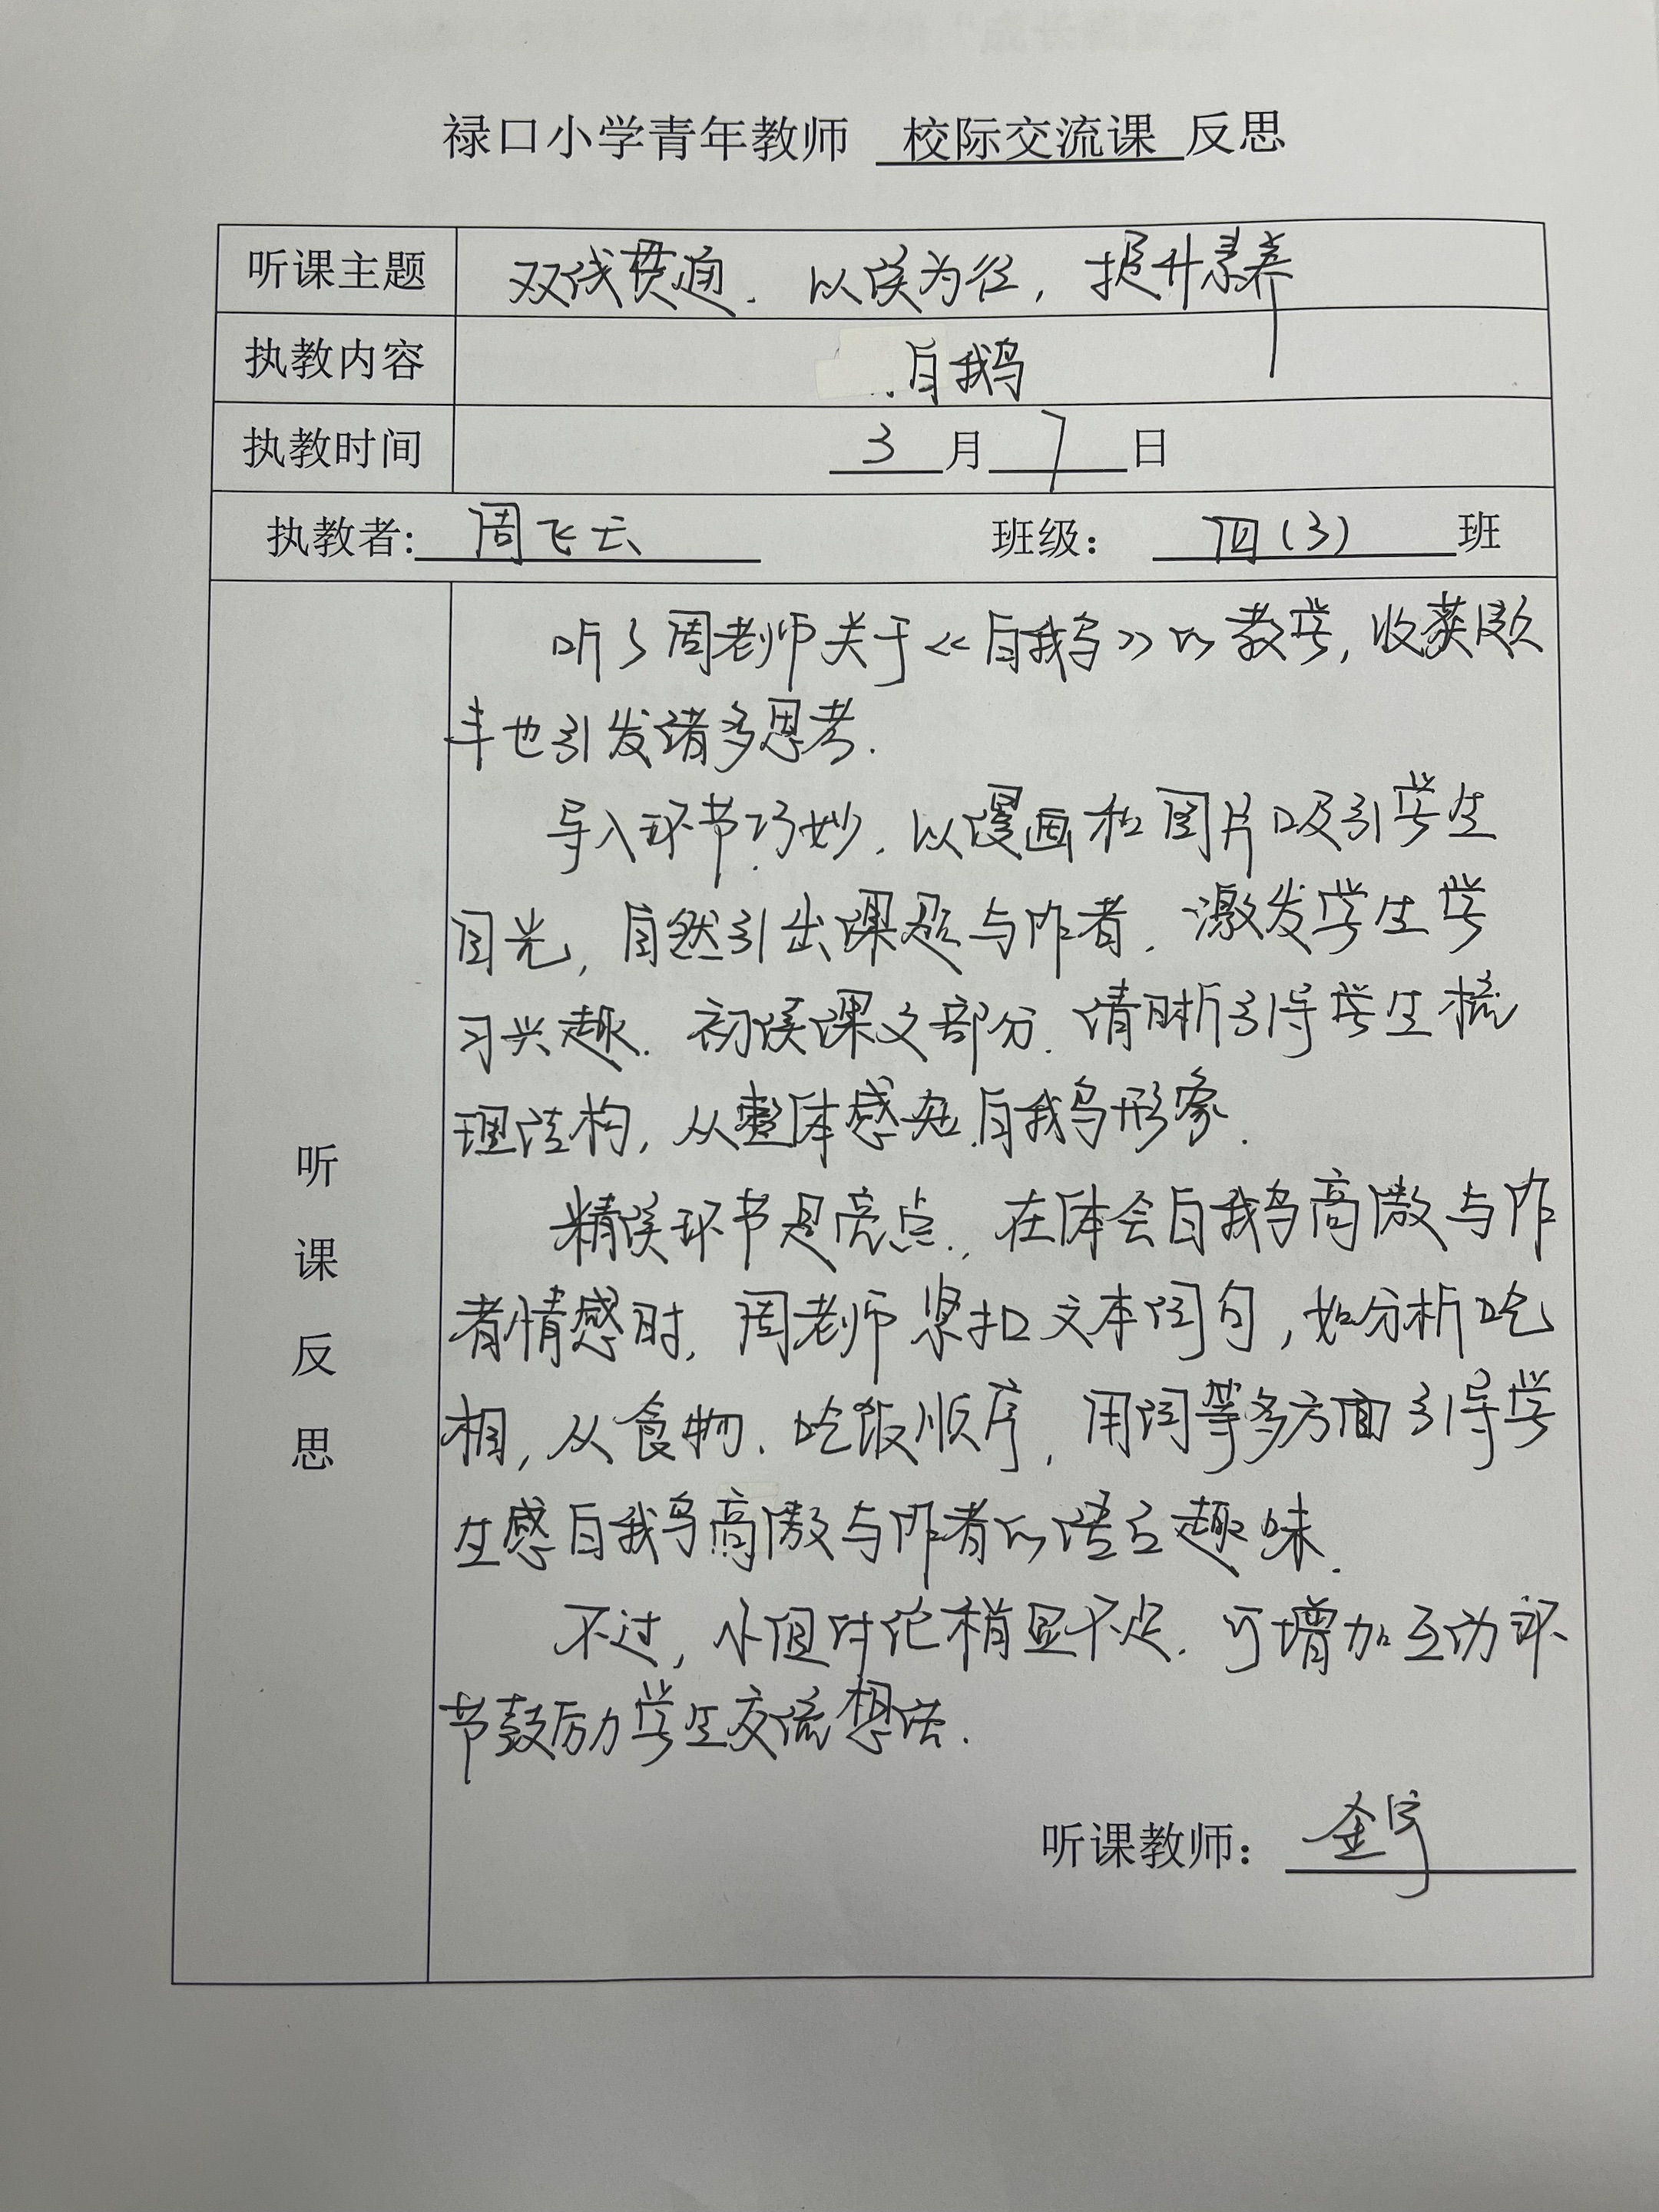 禄口小学青年教师 校际交流课 反思
听课主题 双线贯通，以读为径，提升素养
执教内容 白鹅
执教时间 3月7日
执教者: 周飞云 班级： 四(3) 班
听课反思
听了周老师关于《白鹅》的教学,收获颇
丰也引发诸多思考.
导入环节巧妙,以漫画和图片吸引学生
目光,自然引出课题与作者,激发学生学
习兴趣.初读课文部分,清晰引导学生梳
理结构,从整体感知白鹅形象.
精读环节是亮点,在体会白鹅高傲与作
者情感时,周老师紧扣文本词句,如分析吃
相,从食物、吃饭顺序,用词等多方面引导学
生感白鹅高傲与作者的语言趣味.
不过,小组讨论稍显不足,可增加互动环
节鼓励学生交流想法.
听课教师： 金宇